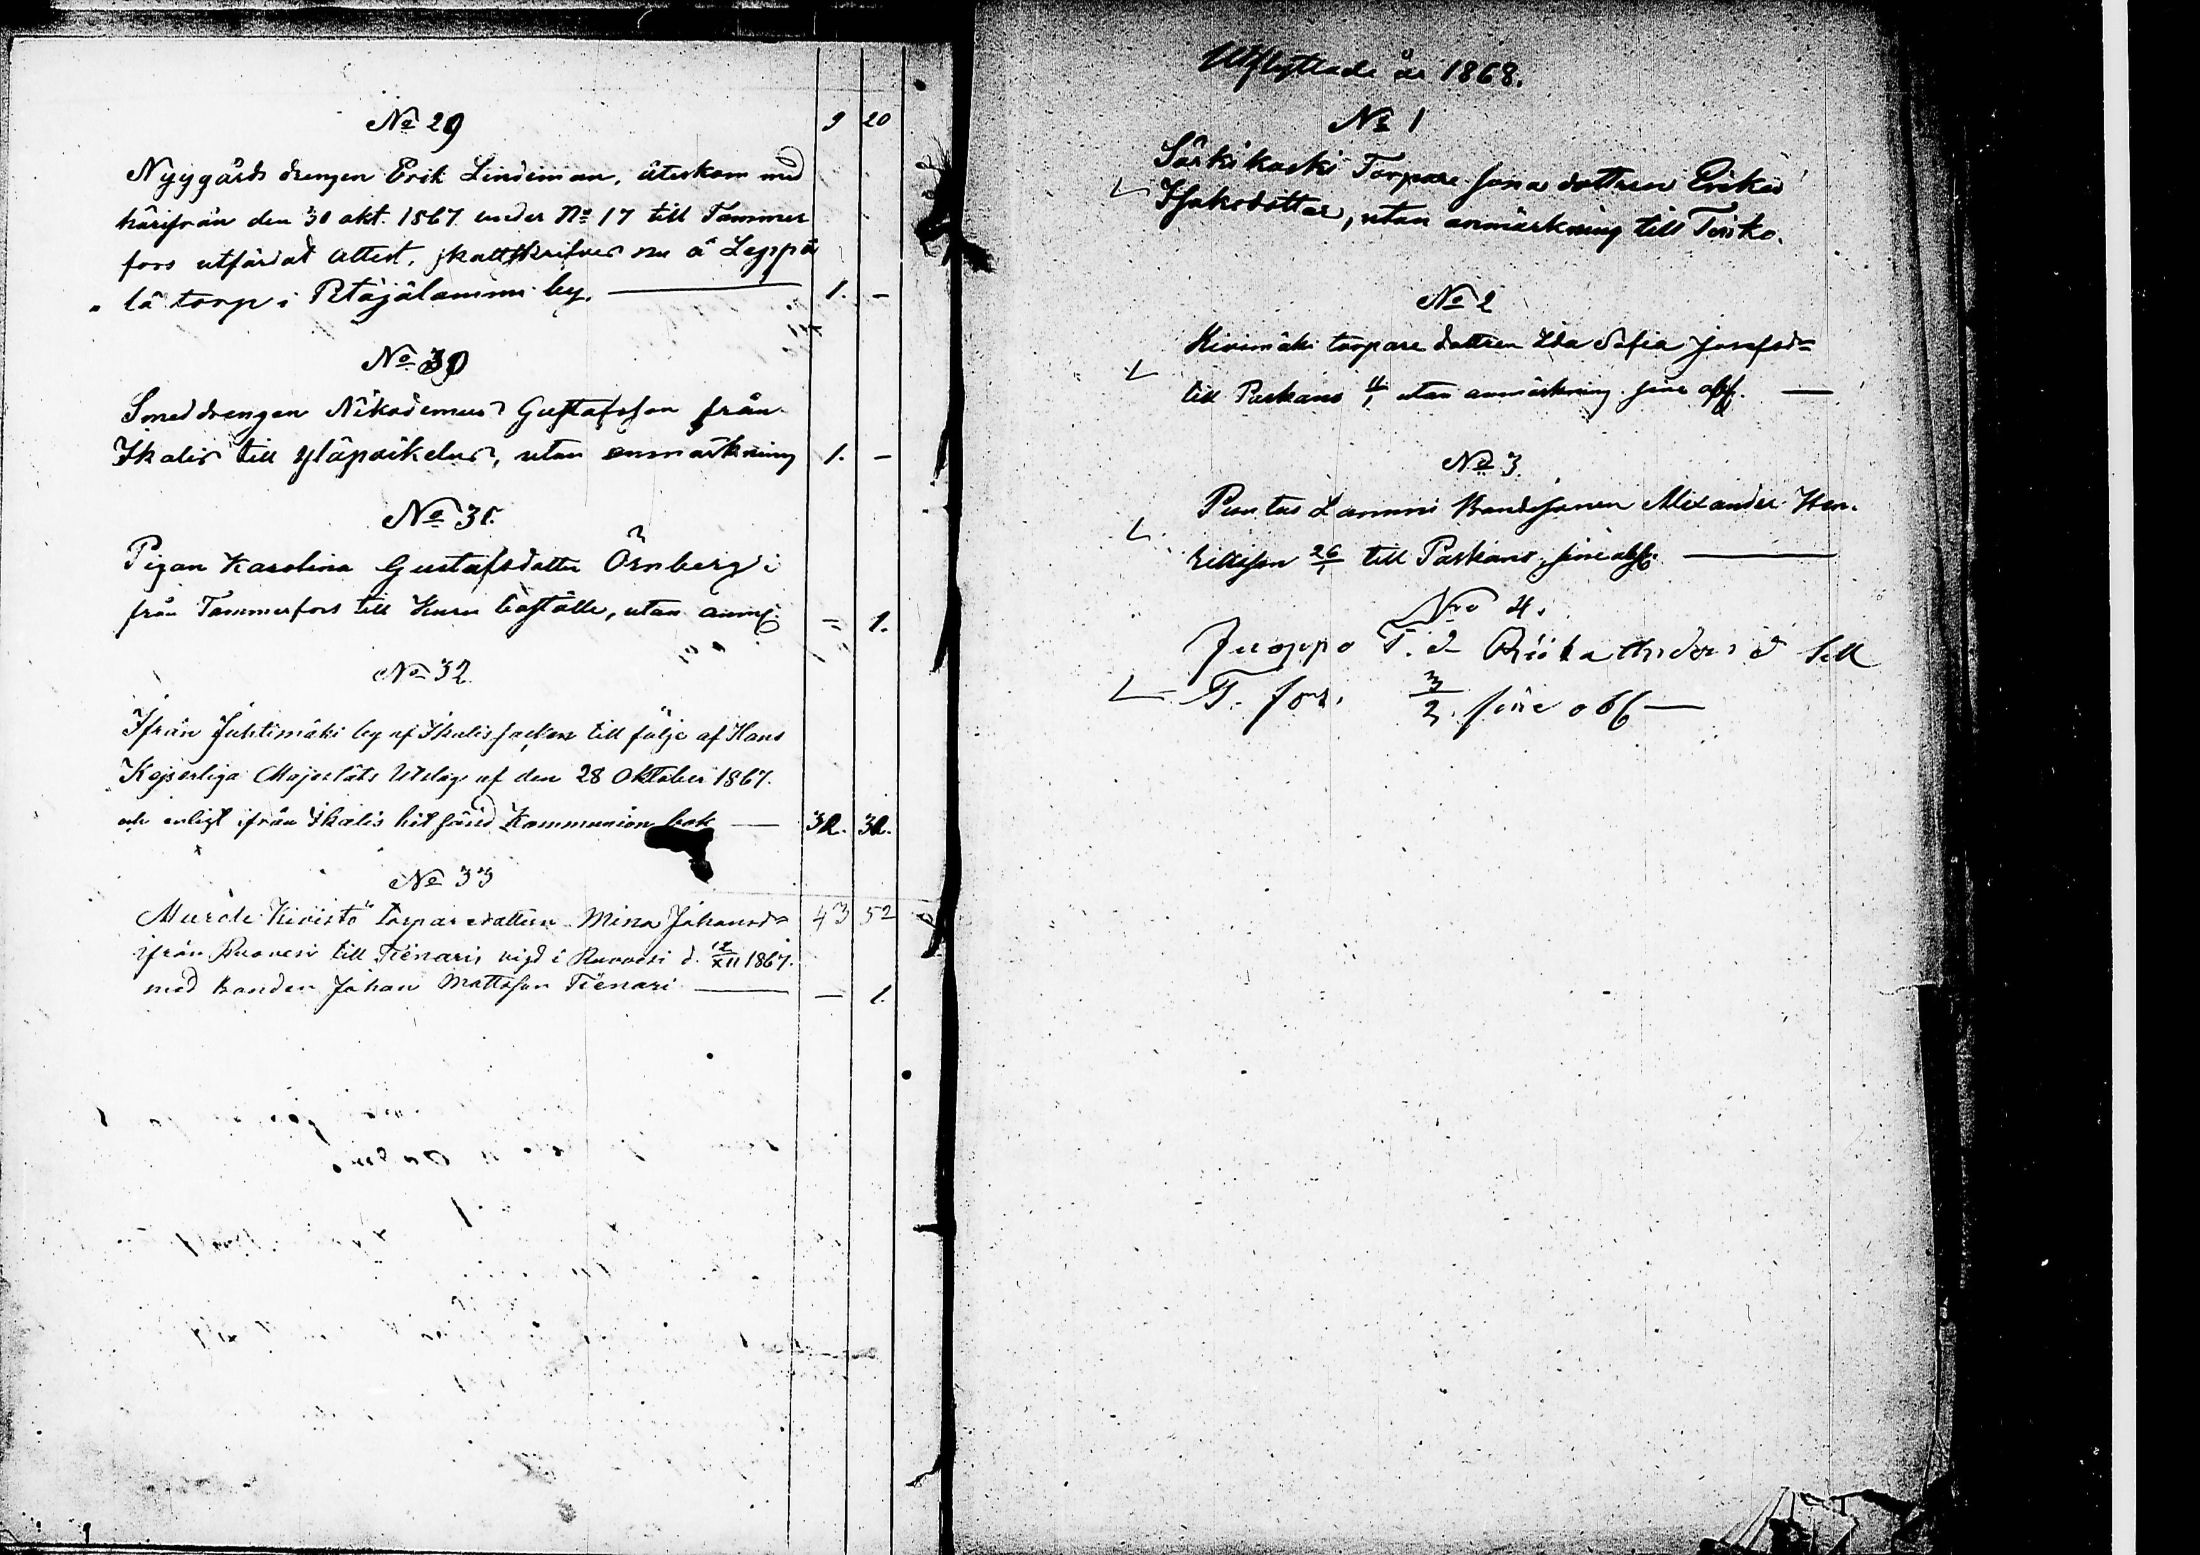 9 20
No 29
Nygårds drengen Erik Lindeman, återkom med
härifrån den 30 okt. 1867 under No 17 till Tammer
fors utfärdad attest, skattskrifves nu å Leppä
lä torp i Petäjälammi by. — 1. —
No 30
Smeddrengen Nikodemus Gustafsson från
Ikalis till Yläpoikelus, utan anmärkning 1. —
No 31.
Pigan Karolina Gustafsdotter Örnberg i
från Tammerfors till Kuru boställe, utan anm. = 1.
No 32
Ifrån Juhtimäki by af Ikalis socken till följe af Hans
Kejserliga Majestäts Utslag af den 28 Oktober 1867.
och enligt ifrån Ikalis hit sänd Kommunion bok —
No 33
Murole Kivistö torparedottren Mina Johansd= 43 52
ifrån Ruovesi till Tienari, vigd i Ruovesi d. 12/XII 1867.
med bonden Johan Mattsson Tienari — — 1.
Utflyttade år 1868.
No 1
Särkikoski Torpare sona dottren Erika
Isaksdotter, utan anmärkning till Teisko.
No 2
Kivimäki torpare dottren Ida Sofia Josefsd=
till Parkano 11/1 utan anmärkning sine obs. —
No 3
Puntus Lammi Bondesonen Alexander Hen-
riksson 26/1 till Parkano, sine obs. —
No 4.
Juoppo T. d Anders d till
T. fors. 3/2. sine obs —